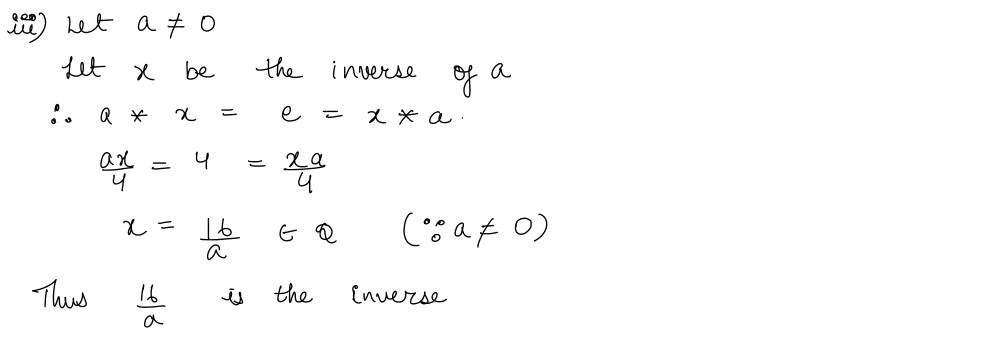 iii) Let a ≠ 0
Let x be the inverse of a
∴ a * x = e = x * a.
ax/4 = 4 = xa/4
x = 16/a ∈ Q (∵ a ≠ 0)
Thus 16/a is the inverse